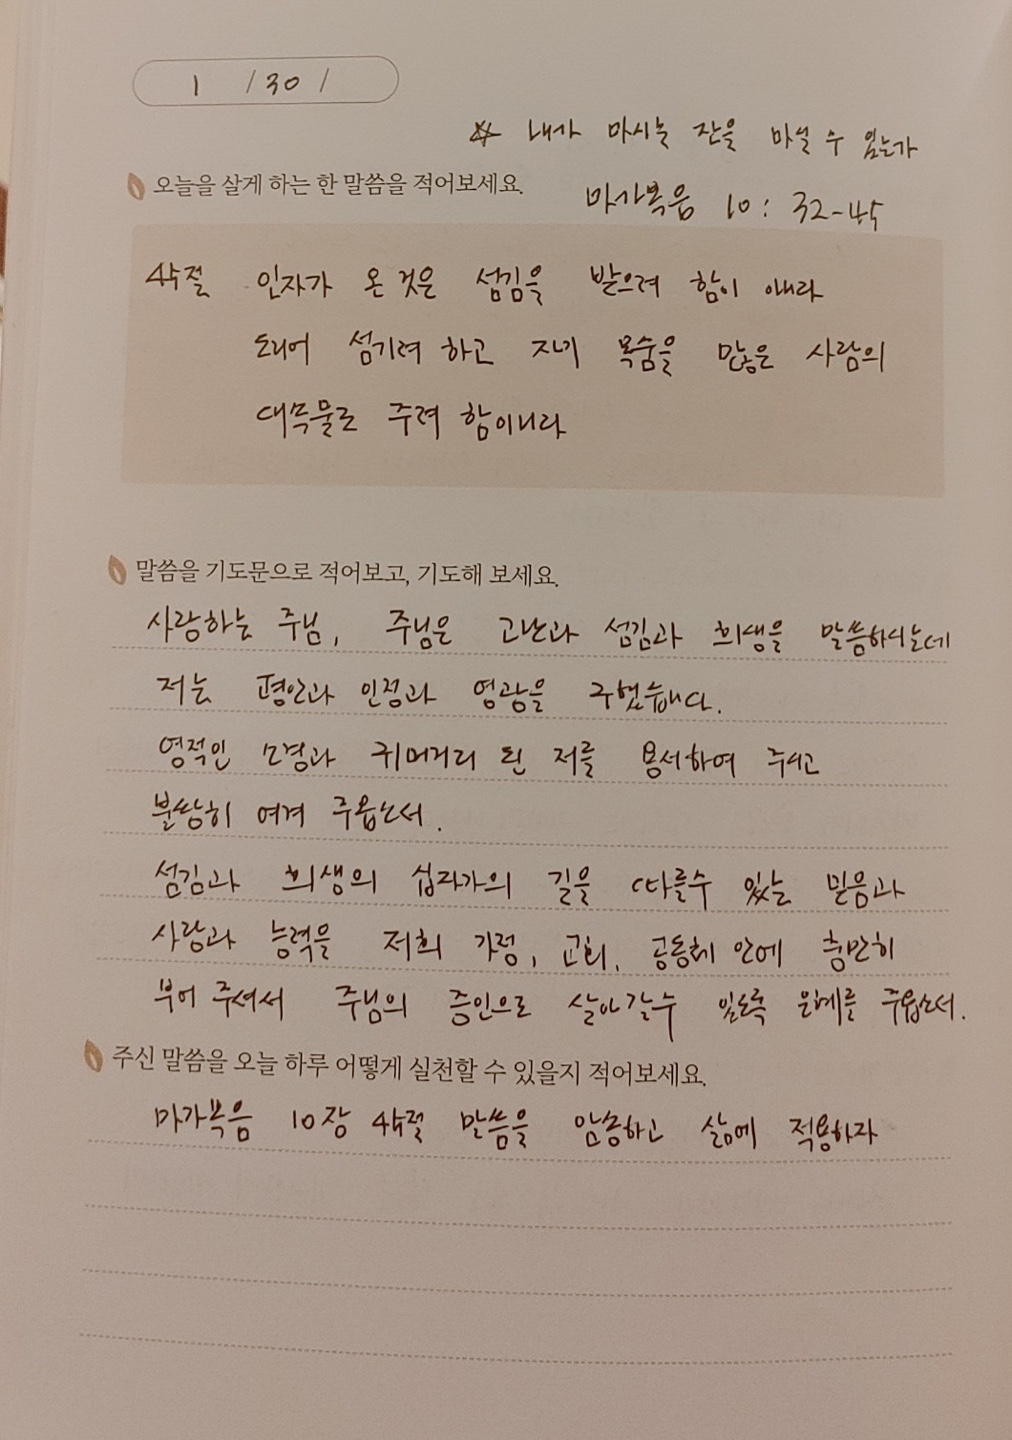 1 / 30 /
☆ 내가 마시는 잔을 마실 수 있는가
오늘을 살게 하는 한 말씀을 적어보세요.
마가복음 10 : 32-45
45절 인자가 온 것은 섬김을 받으려 함이 아니라
도리어 섬기려 하고 자기 목숨을 많은 사람의
대속물로 주려 함이니라
말씀을 기도문으로 적어보고, 기도해 보세요.
사랑하는 주님, 주님은 고난과 섬김과 희생을 말씀하시는데
저는 평안과 인정과 영광을 구했습니다.
영적인 소경과 귀머거리 된 저를 용서하여 주시고
불쌍히 여겨 주옵소서.
섬김과 희생의 십자가의 길을 따를수 있는 믿음과
사랑과 능력을 저희 가정, 교회, 공동체 안에 충만히
부어 주셔서 주님의 증인으로 살아갈수 있도록 은혜를 주옵소서.
주신 말씀을 오늘 하루 어떻게 실천할 수 있을지 적어보세요.
마가복음 10장 45절 말씀을 암송하고 삶에 적용하자